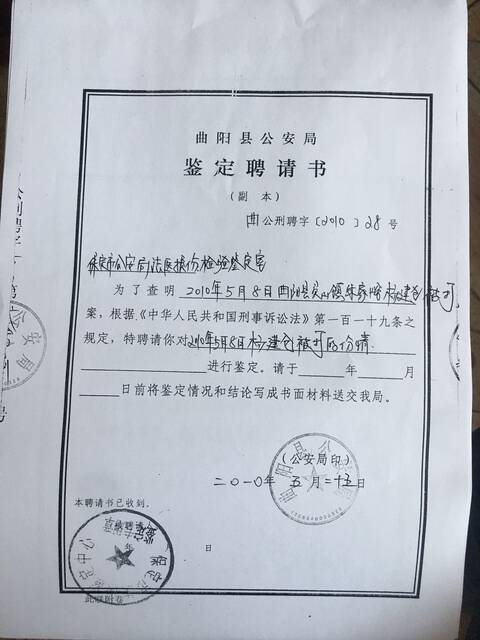 曲阳县公安局
鉴定聘请书
（副 本）
曲公刑聘字〔2010〕28号
保定市公安局法医损伤检验鉴定室
为了查明 2010年5月8日曲阳县 被打
案，根据《中华人民共和国刑事诉讼法》第一百一十九条之
规定，特聘请你对2010年5月8日 建 被打的伤情
进行鉴定。请于 年 月
日前将鉴定情况和结论写成书面材料送交我局。
（公安局印）
二〇一〇年 五月二十五日
本聘请书已收到。
年
日
此联附卷
曲阳县公
鉴定
定中心
保定
安局
公刑聘字
号